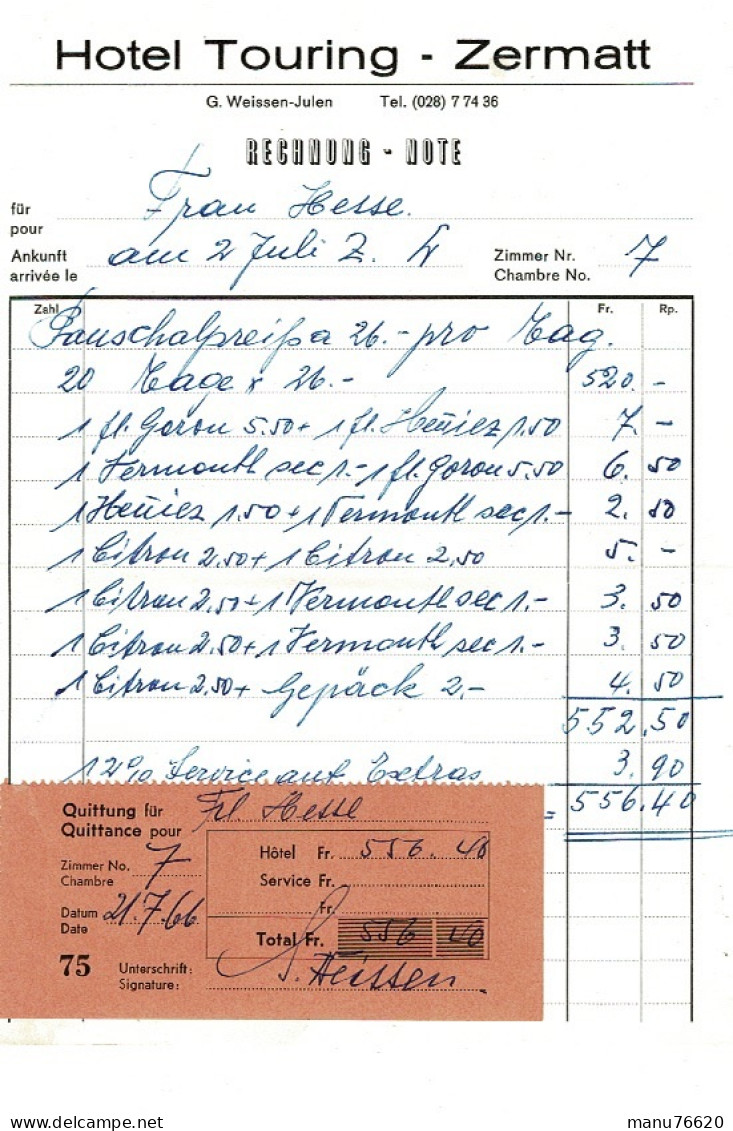 Hotel Touring - Zermatt
G. Weissen-Julen Tel. (028) 7 74 36
RECHNUNG - NOTE
für
pour
Frau Hesse.
Ankunft
arrivée le
am 2 Juli Z. 
Zimmer Nr.
Chambre No.
7
Zahl Fr. Rp.
Pauschalpreiß a 26.- pro Tag.
20 Tage x 26.- 520. -
1 fl. Goron 5.50 + 1 fl. Heniez 1.50 7. -
1 Vermouth sec 1.- 1 fl. Goron 5.50 6. 50
1 Heniez 1.50 + 1 Vermouth sec 1.- 2. 50
1 Citron 2,50 + 1 Citron 2,50 5. -
1 Citron 2,50 + 1 Vermouth sec 1.- 3. 50
1 Citron 2.50 + 1 Vermouth sec 1.- 3. 50
1 Citron 2,50 + Gepäck 2.- 4. 50
552.50
12% Service auf Extras 3. 90
= 556.40
Quittung für
Quittance pour
Frl. Hesse
Zimmer No.
Chambre
7
Hôtel Fr. 556. 40
Service Fr.
Fr.
Datum
Date
21.7.66
Total Fr. 556 40
75
Unterschrift:
Signature:
Weissen
manu76620